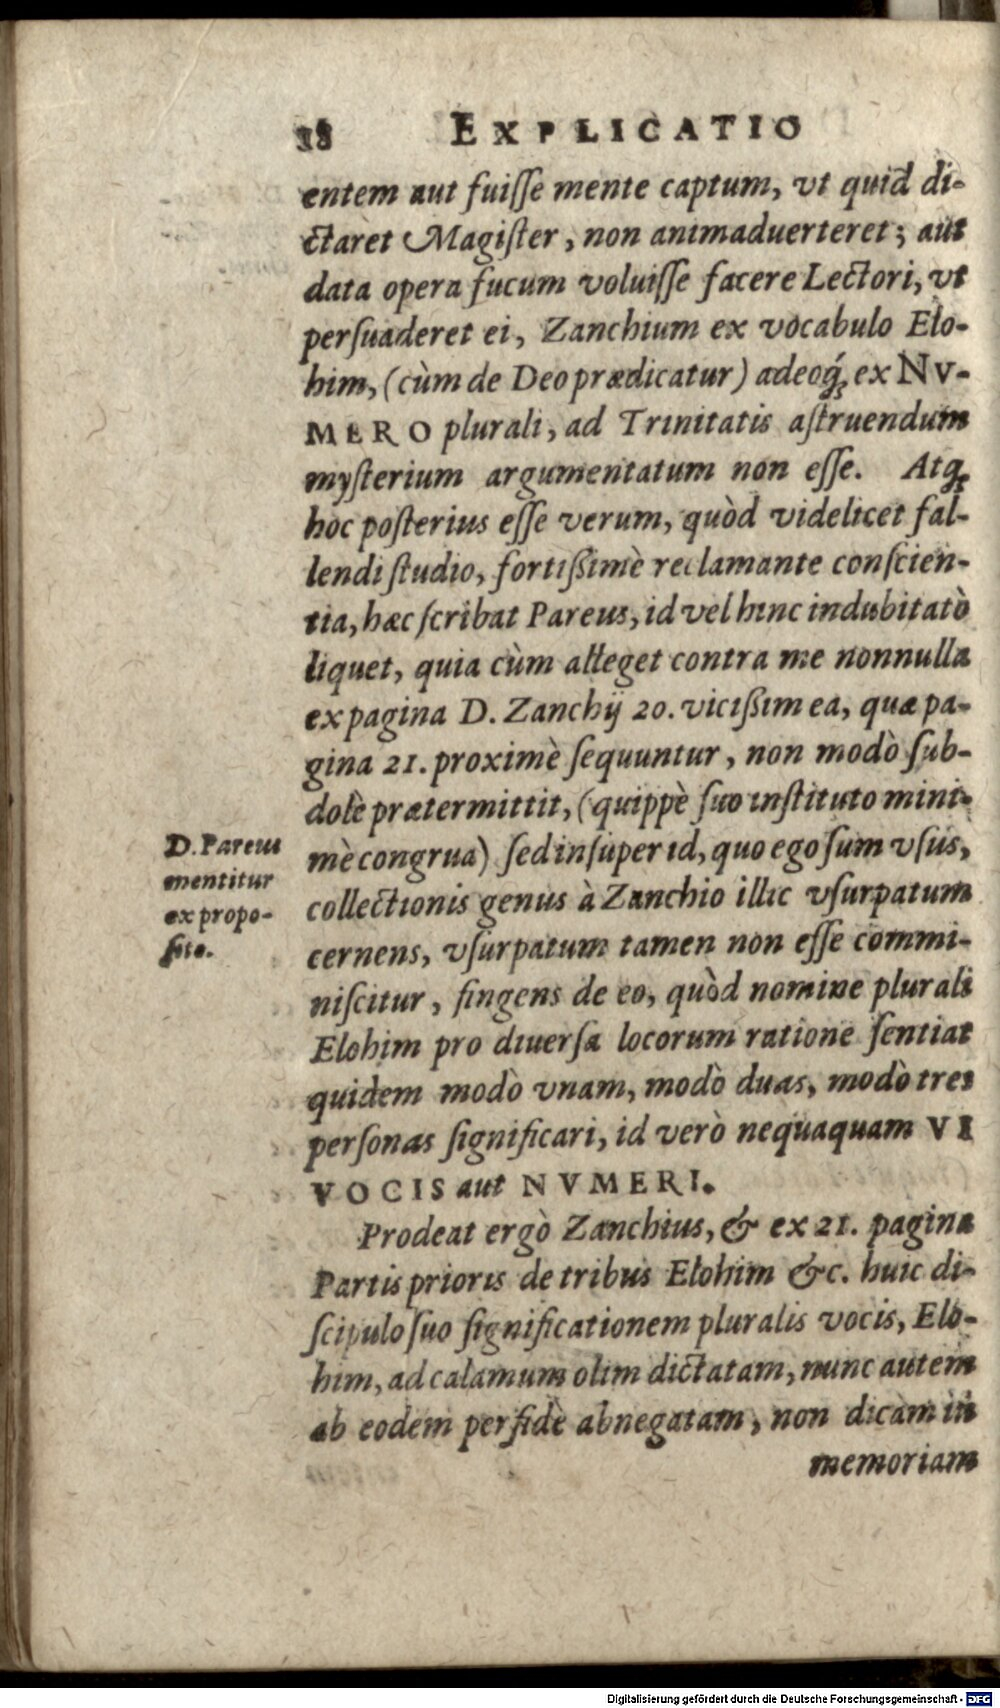 18 EXPLICATIO
entem aut fuiſſe mente captum, vt quid di-
ctaret Magiſter, non animaduerteret; aut
data opera fucum voluiſſe facere Lectori, vt
perſuaderet ei, Zanchium ex vocabulo Elo-
him, (cùm de Deo prædicatur) adeoq́; ex NV-
MERO plurali, ad Trinitatis aſtruendum
myſterium argumentatum non eſſe. Atq;
hoc poſterius eſſe verum, quòd videlicet fal-
lendi ſtudio, fortißimè reclamante conſcien-
tia, hæc ſcribat Pareus, id vel hinc indubitatò
liquet, quia cùm alleget contra me nonnulla
ex pagina D. Zanchij 20. vicißim ea, quæ pa-
gina 21. proximè ſequuntur, non modò ſub-
dolè prætermittit, (quippè ſuo inſtituto mini-
mè congrua) ſed inſuper id, quo ego ſum vſus,
collectionis genus à Zanchio illic vſurpatum
cernens, vſurpatum tamen non eſſe commi-
niſcitur, fingens de eo, quòd nomine plurali
Elohim pro diuerſa locorum ratione ſentiat
quidem modò vnam, modò duas, modò tres
perſonas ſignificari, id verò nequaquam VI
VOCIS aut NVMERI.
Prodeat ergò Zanchius, & ex 21. pagina
Partis prioris de tribus Elohim &c. huic di-
ſcipulo ſuo ſignificationem pluralis vocis, Elo-
him, ad calamum olim dictatam, nunc autem
ab eodem perfidè abnegatam, non dicàm in
memoriam
D. Pareus
mentitur
ex propo-
ſito.
Digitalisierung gefördert durch die Deutsche Forschungsgemeinschaft - DFG